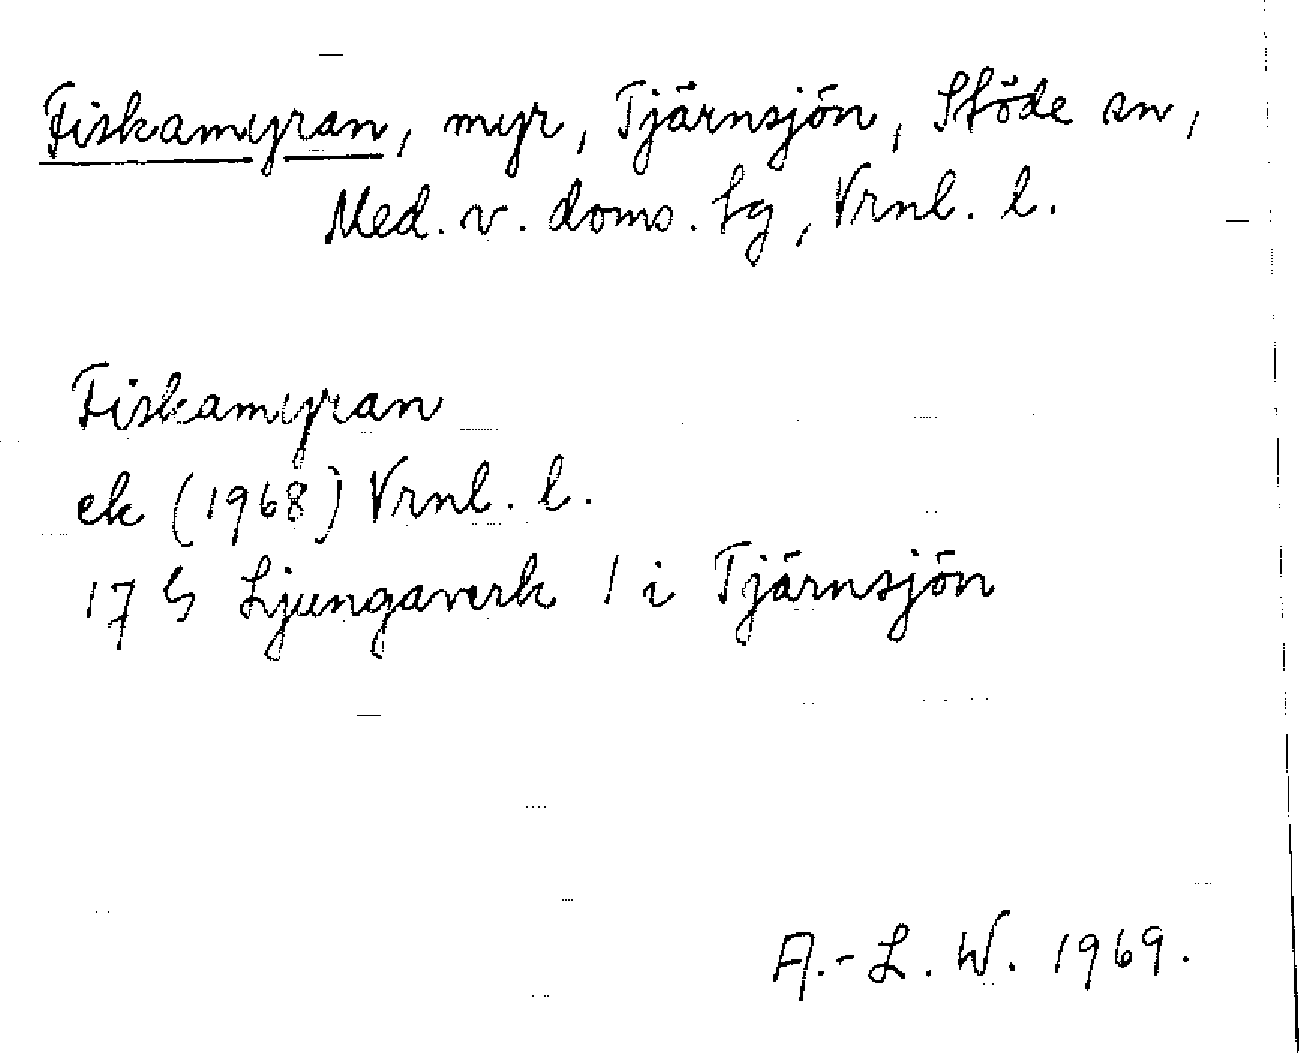 Fiskamyran, myr, Tjärnsjön, Stöde sn,
Med. v. doms. tg, Vrnl. l.
Fiskamyran
ek (1968) Vrnl. l.
17 G Ljungaverk 1 i Tjärnsjön
A.-L. W. 1969.